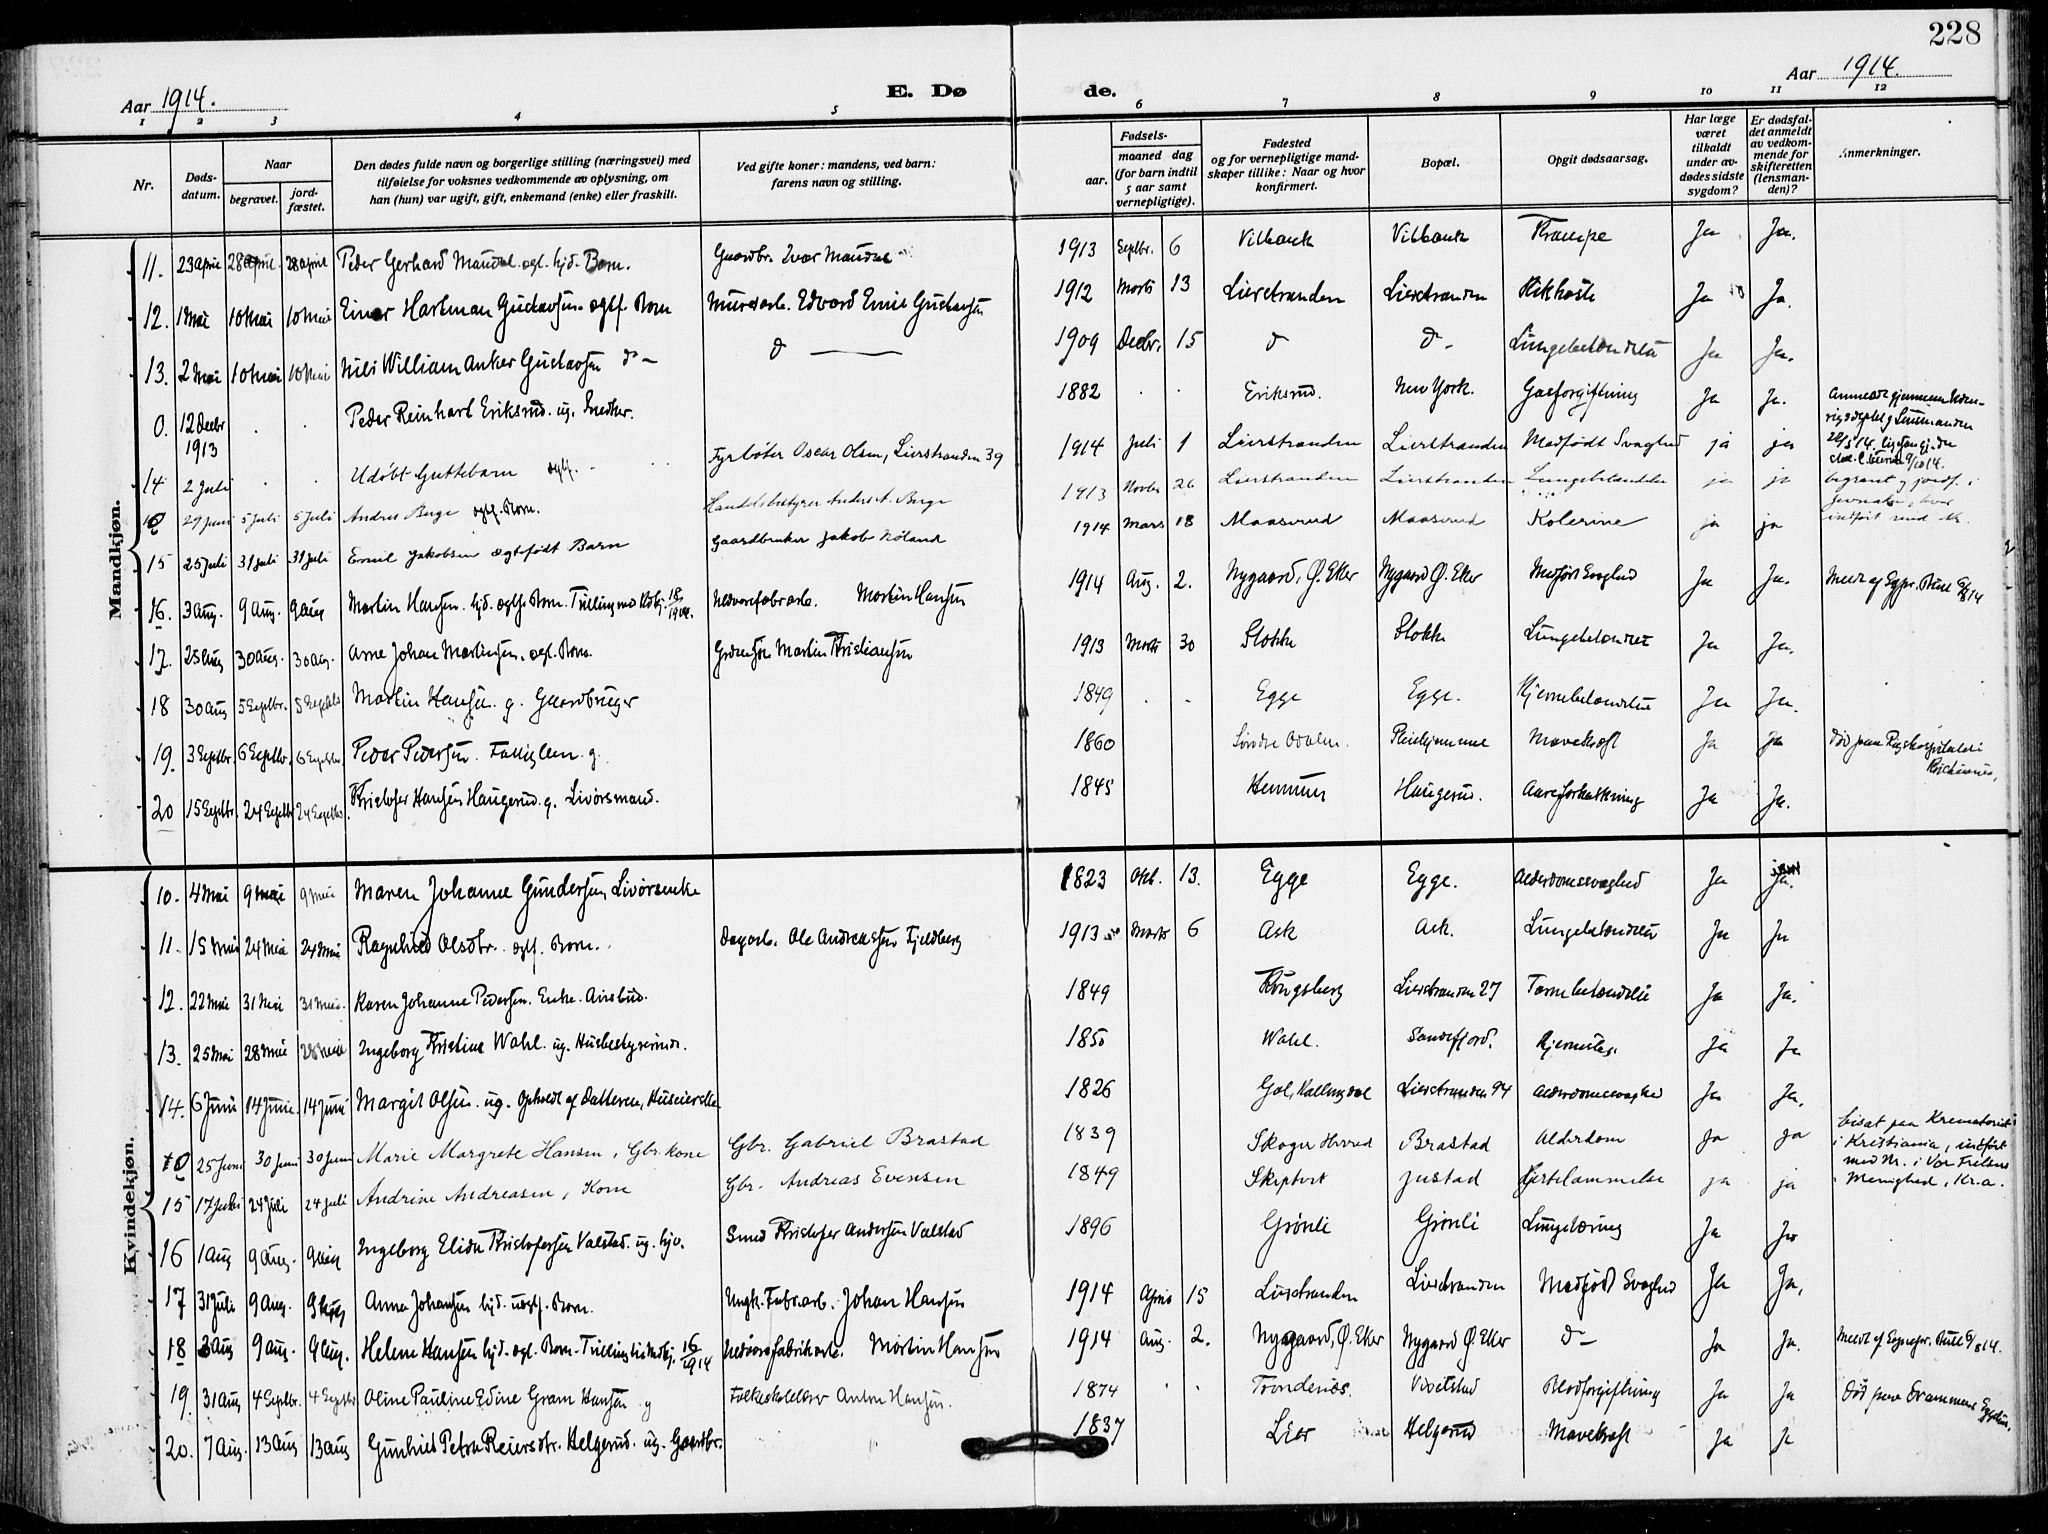 228
Aar 1914.
E. Dø de.
Aar 1914.
1 2 3 4 5 6 7 8 9 10 11 12
Nr.
Døds-
datum.
Naar
begravet.
jord-
fæstet.
Den dødes fulde navn og borgerlige stilling (næringsvei) med
tilføielse for voksnes vedkommende av oplysning, om
han (hun) var ugift, gift, enkemand (enke) eller fraskilt.
Ved gifte koner: mandens, ved barn:
farens navn og stilling.
Fødsels-
aar.
maaned dag
(for barn indtil
5 aar samt
vernepligtige).
Fødested
og for vernepligtige mand-
skaper tillike: Naar og hvor
konfirmert.
Bopæl.
Opgit dødsaarsag.
Har læge
været
tilkaldt
under av-
dødes sidste
sygdom?
Er dødsfal-
det anmeldt
av vedkom-
mende for
skifteretten
(lensman-
den)?
Anmerkninger.
Mandkjøn.
11. 23 april 28 april 28 april Peder Gerhard Maudal. egt. hjd. Barn. Gaardbr. Ivar Maudal 1913 Septbr. 6 Vilbank Vilbank Krampe Ja Ja.
12. 1 Mai 10 Mai 10 Mai Einar Hartman Gustavsen. egtf. Barn Murerarb. Edvard Emil Gustavsen 1912 Marts 13 Lierstranden Lierstranden Kikhoste Ja Ja.
13. 2 Mai 10 Mai 10 Mai Nils William Anker Gustavsen do - do 1909 Decbr. 15 do do - Lungebetændelse Ja Ja.
0. 12 Decbr 1913 . . Peder Reinhart Eriksrud. ug. Snedker. 1882 . . Eriksrud. New York. Gasforgiftning Ja Ja.
14 2 Juli . . Udøbt Guttebarn egtf. Fyrbøter Oscar Olsen, Lierstranden 39 1914 Juli 1 Lierstranden Lierstranden Medfødt Svaghed ja ja
0 29 Juni 5 Juli 5 Juli Andres Berge egtf. Barn. Handelsbestyrer Anders A. Berge 1913 Novbr 26 Lierstranden Lierstranden Lungebetændelse ja ja begravet og jordf. i
15 25 Juli 31 Juli 31 Juli Emil Jakobsen egtefødt Barn Gaardbruker Jakob Nøland 1914 Mars 18 Maaserud Maaserud Kolerine ja ja
16. 3 Aug. 9 Aug. 9 Aug Martin Hansen. hjd. egtf. Barn. Tvilling med Kvkj. 18/1914. Uldvarefabrarb. Martin Hansen 1914 Aug. 2. Nygaard, Ø. Eker Nygaard Ø. Eker Medfødt Svaghed Ja Ja.
17. 25 Aug 30 Aug. 30 Aug. Arne Johan Martinsen. egt. Barn. Martin Kristiansen 1913 Marts 30 Stokke Stokke Lungebetændelse Ja Ja.
18 30 Aug 5 Septbr. 5 Septbr Martin Hansen. g. Gaardbruger 1849 . . Egge Egge. Hjernebetændelse Ja Ja.
19. 3 Septbr. 6 Septbr. 6 Septbr Peder Pedersen. Fattiglem. g. 1860 Søndre Odalen. Pleiehjemmet Mavekræft Ja Ja død paa Rigshospitalet i
Kristiania.
20 15 Septbr. 24 Septbr 24 Septbr. Kristofer Hansen Haugerud. g. Livørsmand. 1845 Hennum Haugerud. Aareforkalkning Ja Ja.
Kvindekjøn.
10. 4 Mai 9 Mai 9 Mai Maren Johanne Gundersen, Livørsenke 1823 Okt. 13. Egge Egge. Alderdomssvaghed Ja Ja.
11. 15 Mai 24 Mai 24 Mai Ragnhild Olsdtr. egtf. Barn. Dagarb. Ole Andreassen Fjeldberg 1913 Marts 6 Ask Ask. Lungebetændelse Ja Ja
12. 22 Mai 31 Mai 31 Mai. Karen Johanne Pedersen. Enke. 1849 Kongsberg Lierstranden 27 Tarmbetændelse Ja Ja.
13. 25 Mai 28 Mai 28 Mai Ingeborg Kristine Wahl. ug. Husbestyrerinde. 1850 Wahl. Sandefjord. Ja Ja
14. 6 Juni 14 Juni. 14 Juni Margit Olsen. ug. opholdt af Datteren, Huseierske 1826 Gol, Hallingdal Lierstranden 94 Alderdomssvaghed Ja Ja.
0 25 Juni 30 Juni 30 Juni Marie Margrete Hansen, Gbr. kone Gbr. Gabriel Brastad 1839 Skoger Herred Brastad Alderdom ja ja bisat paa Krematoriet
i Kristiania, indført
med Nr. i Vor Frelsers
Menighed, Kr.a.
15 17 Juli 24 Juli 24 Juli Andrine Andreasen, Kone Gbr. Andreas Evensen 1849 Skiptvet Justad Hjertelammelse ja ja
16 1 Aug 9 Aug. 9 Aug Ingeborg Elida Kristofersen Valstad. ug. hjv. Smed Kristofer Andersen Valstad 1896 Grønli Grønli Lungetæring Ja Ja
17 31 Juli 9 Aug. 9 Aug Anna Johansen hjd. uegtf. Barn. Ungk. Fabr.arb. Johan Hansen 1914 April 15 Lierstranden Lierstranden Medfødt Svaghed Ja Ja.
18 3 Aug 9 Aug 9 Aug. Helene Hansen hjd. egt. Barn. Tvilling til Mdkj. 16/1914 Uldvarefabrikarb. Martin Hansen 1914 Aug. 2. Nygaard, Ø. Eker Nygaard Ø. Eker do - Ja Ja.
19. 31 Aug 4 Septbr. 4 Septbr Oline Pauline Edine Gram Hansen g Folkeskolelærer Anton Hansen. 1874 . . Trondenes. Vivelstad Blodforgiftning Ja Ja Død paa Drammens Sygehus.
20. 7 Aug. 13 Aug 13 Aug Gunhild Petra Reiersdtr. Helgerud. ug. Gaardbr. 1837 Lier Helgerud Mavekræft Ja Ja